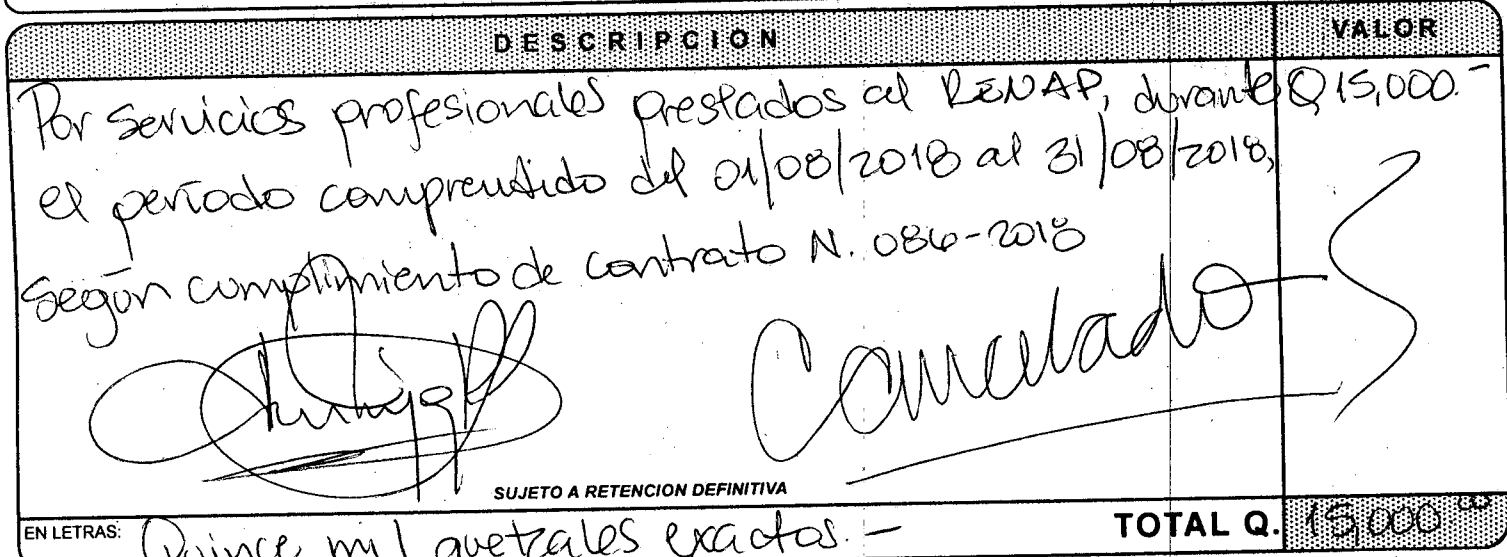 DESCRIPCION VALOR
Por Servicios profesionales prestados al RENAP, durante Q 15,000.-
el período comprendido del 01/08/2018 al 31/08/2018,
Según cumplimiento de contrato N. 086-2018
Cancelado
SUJETO A RETENCION DEFINITIVA
EN LETRAS: Quince mil quetzales exactos.- TOTAL Q. 15,000.00